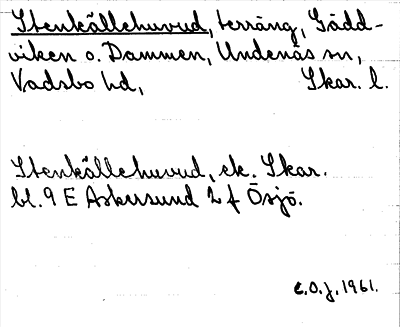 Stenkällehuvud, terräng, Gädd-
viken o. Dammen, Undenäs sn,
Vadsbo hd, Skar. l.
Stenkällehuvud, ek. Skar.
bl. 9 E Askersund 2 f Ösjö.
C.O.J. 1961.